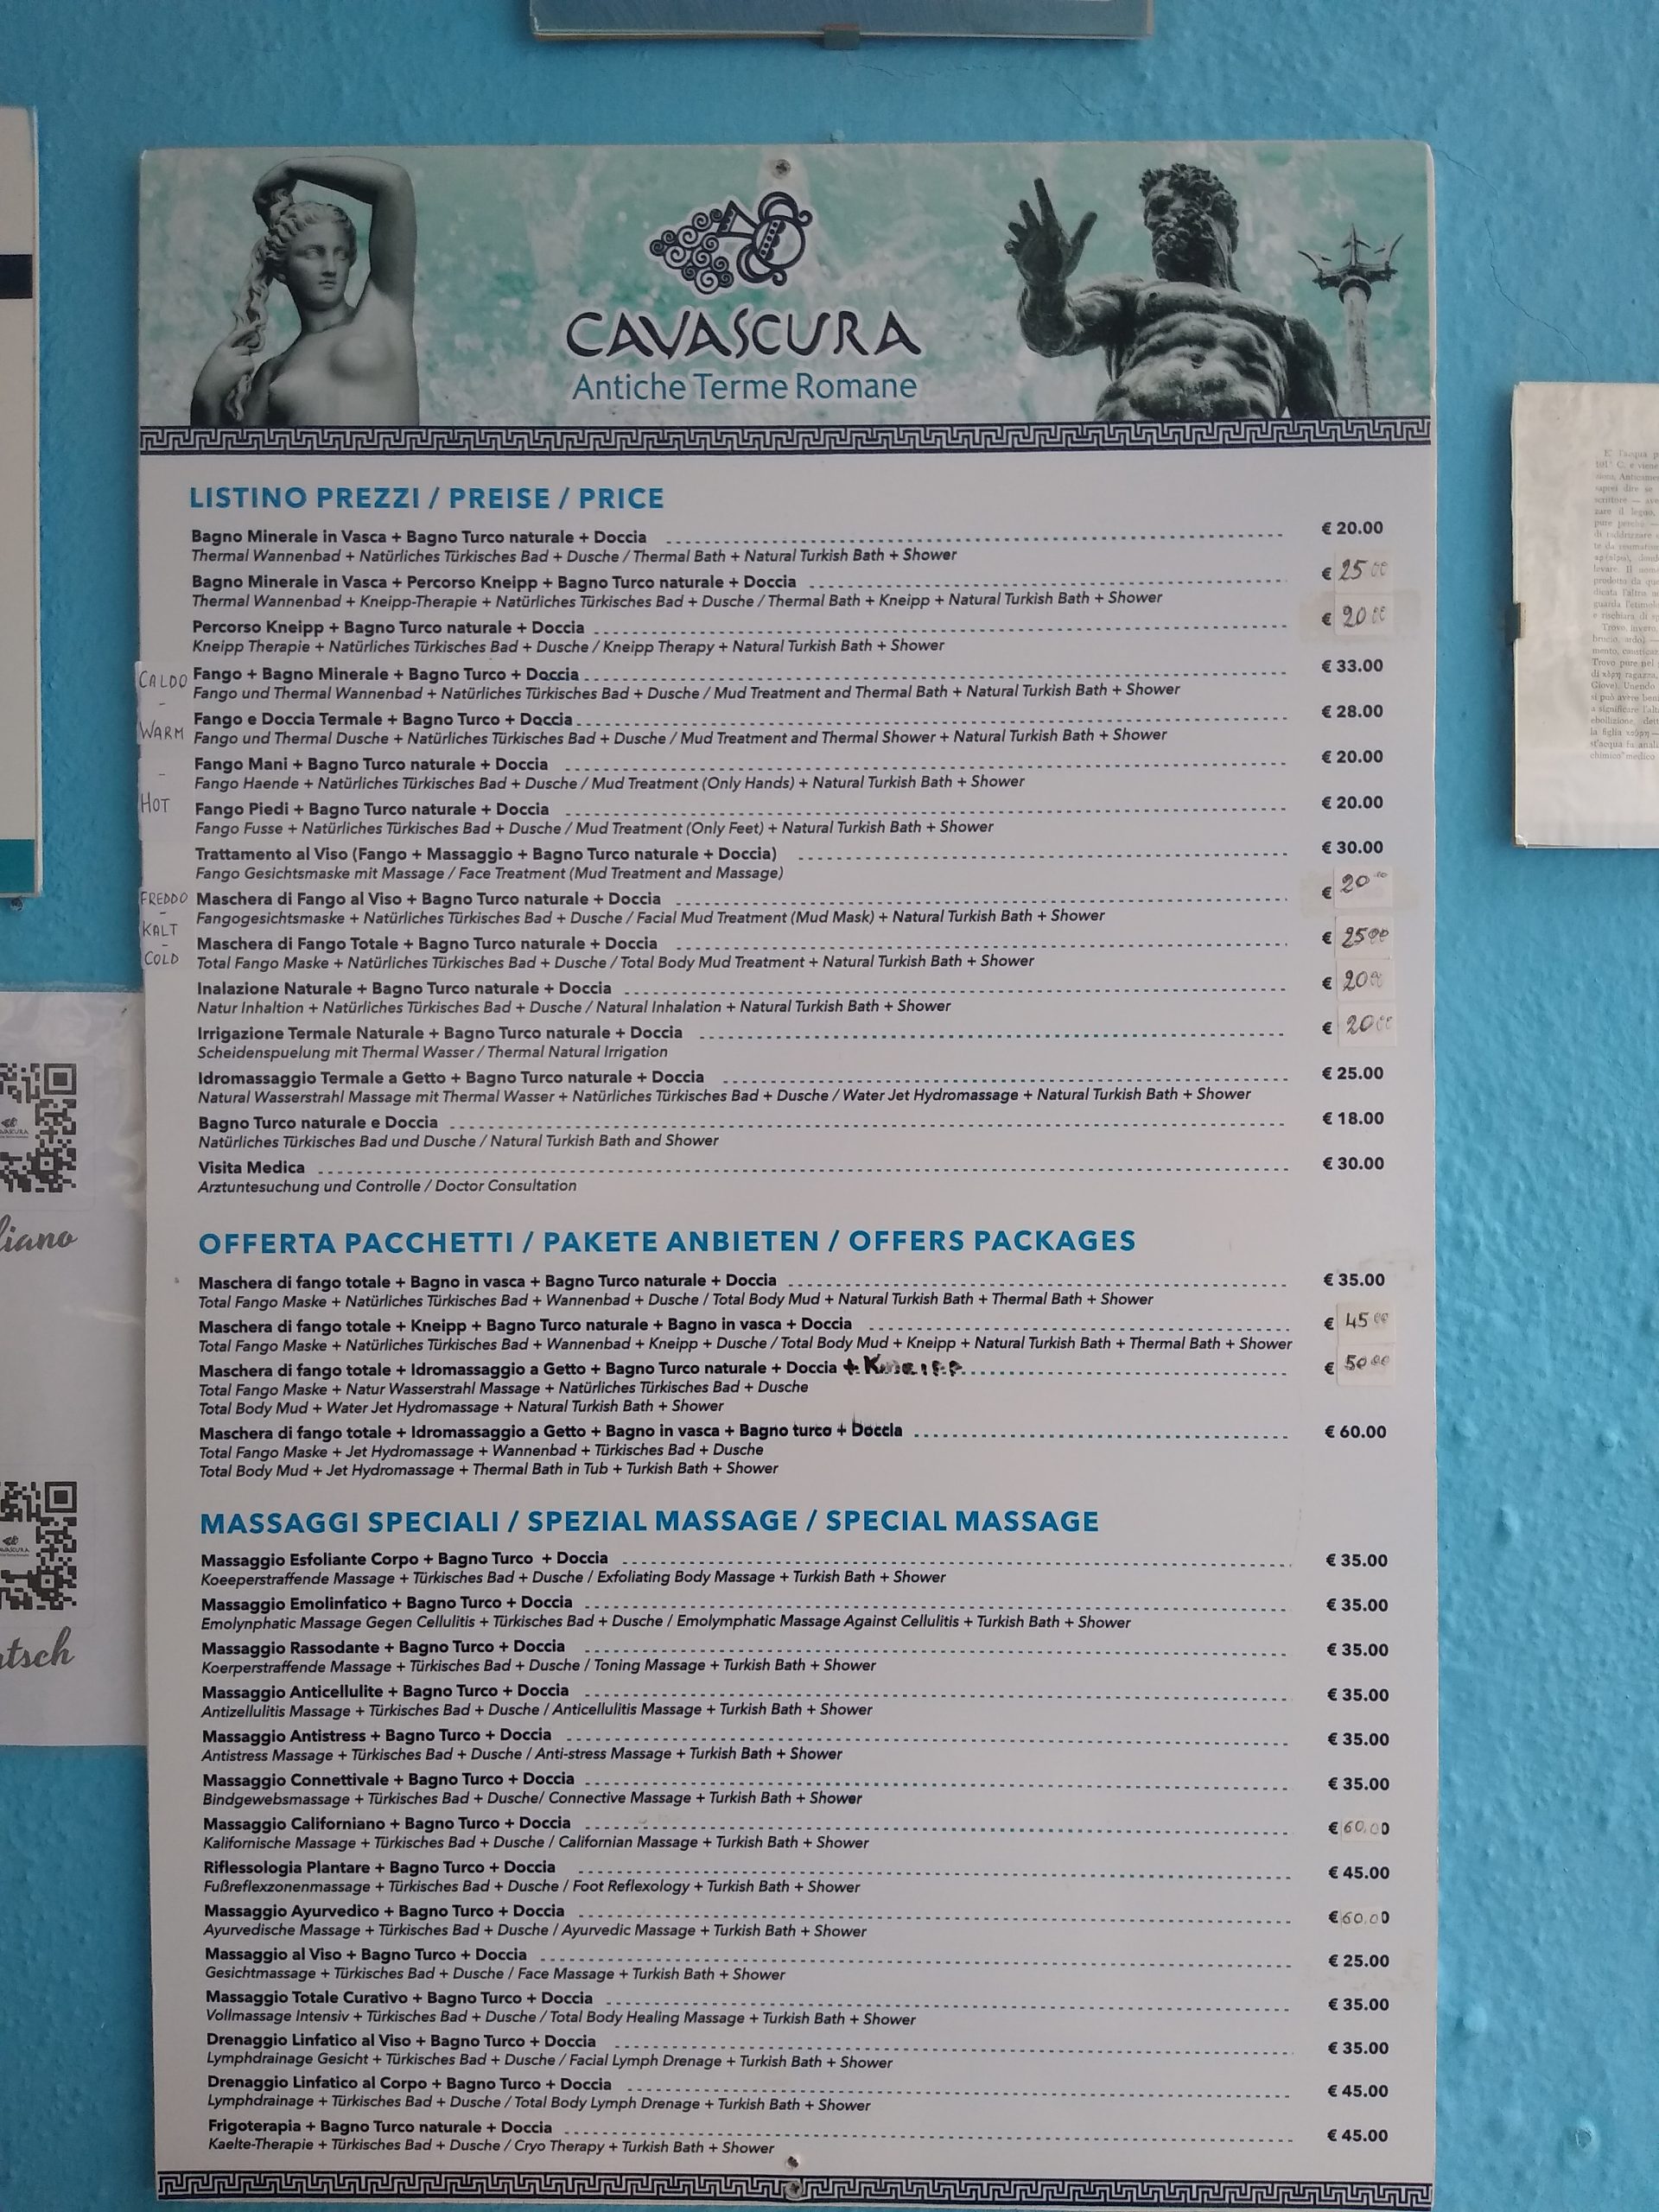 CAVASCURA
Antiche Terme Romane
LISTINO PREZZI / PREISE / PRICE
Bagno Minerale in Vasca + Bagno Turco naturale + Doccia € 20.00
Thermal Wannenbad + Natürliches Türkisches Bad + Dusche / Thermal Bath + Natural Turkish Bath + Shower
Bagno Minerale in Vasca + Percorso Kneipp + Bagno Turco naturale + Doccia € 25 00
Thermal Wannenbad + Kneipp-Therapie + Natürliches Türkisches Bad + Dusche / Thermal Bath + Kneipp + Natural Turkish Bath + Shower
Percorso Kneipp + Bagno Turco naturale + Doccia € 20 00
Kneipp Therapie + Natürliches Türkisches Bad + Dusche / Kneipp Therapy + Natural Turkish Bath + Shower
CALDO
-
WARM
-
HOT
Fango + Bagno Minerale + Bagno Turco + Doccia € 33.00
Fango und Thermal Wannenbad + Natürliches Türkisches Bad + Dusche / Mud Treatment and Thermal Bath + Natural Turkish Bath + Shower
Fango e Doccia Termale + Bagno Turco + Doccia € 28.00
Fango und Thermal Dusche + Natürliches Türkisches Bad + Dusche / Mud Treatment and Thermal Shower + Natural Turkish Bath + Shower
Fango Mani + Bagno Turco naturale + Doccia € 20.00
Fango Haende + Natürliches Türkisches Bad + Dusche / Mud Treatment (Only Hands) + Natural Turkish Bath + Shower
Fango Piedi + Bagno Turco naturale + Doccia € 20.00
Fango Fusse + Natürliches Türkisches Bad + Dusche / Mud Treatment (Only Feet) + Natural Turkish Bath + Shower
Trattamento al Viso (Fango + Massaggio + Bagno Turco naturale + Doccia) € 30.00
Fango Gesichtsmaske mit Massage / Face Treatment (Mud Treatment and Massage)
FREDDO
-
KALT
-
COLD
Maschera di Fango al Viso + Bagno Turco naturale + Doccia € 20 00
Fangogesichtsmaske + Natürliches Türkisches Bad + Dusche / Facial Mud Treatment (Mud Mask) + Natural Turkish Bath + Shower
Maschera di Fango Totale + Bagno Turco naturale + Doccia € 25 00
Total Fango Maske + Natürliches Türkisches Bad + Dusche / Total Body Mud Treatment + Natural Turkish Bath + Shower
Inalazione Naturale + Bagno Turco naturale + Doccia € 20 00
Natur Inhaltion + Natürliches Türkisches Bad + Dusche / Natural Inhalation + Natural Turkish Bath + Shower
Irrigazione Termale Naturale + Bagno Turco naturale + Doccia € 20 00
Scheidenspuelung mit Thermal Wasser / Thermal Natural Irrigation
Idromassaggio Termale a Getto + Bagno Turco naturale + Doccia € 25.00
Natural Wasserstrahl Massage mit Thermal Wasser + Natürliches Türkisches Bad + Dusche / Water Jet Hydromassage + Natural Turkish Bath + Shower
Bagno Turco naturale e Doccia € 18.00
Natürliches Türkisches Bad und Dusche / Natural Turkish Bath and Shower
Visita Medica € 30.00
Arztuntesuchung und Controlle / Doctor Consultation
OFFERTA PACCHETTI / PAKETE ANBIETEN / OFFERS PACKAGES
Maschera di fango totale + Bagno in vasca + Bagno Turco naturale + Doccia € 35.00
Total Fango Maske + Natürliches Türkisches Bad + Wannenbad + Dusche / Total Body Mud + Natural Turkish Bath + Thermal Bath + Shower
Maschera di fango totale + Kneipp + Bagno Turco naturale + Bagno in vasca + Doccia € 45 00
Total Fango Maske + Natürliches Türkisches Bad + Wannenbad + Kneipp + Dusche / Total Body Mud + Kneipp + Natural Turkish Bath + Thermal Bath + Shower
Maschera di fango totale + Idromassaggio a Getto + Bagno Turco naturale + Doccia + Kneipp € 50 00
Total Fango Maske + Natur Wasserstrahl Massage + Natürliches Türkisches Bad + Dusche
Total Body Mud + Water Jet Hydromassage + Natural Turkish Bath + Shower
Maschera di fango totale + Idromassaggio a Getto + Bagno in vasca + Bagno turco + Doccia € 60.00
Total Fango Maske + Jet Hydromassage + Wannenbad + Türkisches Bad + Dusche
Total Body Mud + Jet Hydromassage + Thermal Bath in Tub + Turkish Bath + Shower
MASSAGGI SPECIALI / SPEZIAL MASSAGE / SPECIAL MASSAGE
Massaggio Esfoliante Corpo + Bagno Turco + Doccia € 35.00
Koeeperstraffende Massage + Türkisches Bad + Dusche / Exfoliating Body Massage + Turkish Bath + Shower
Massaggio Emolinfatico + Bagno Turco + Doccia € 35.00
Emolynphatic Massage Gegen Cellulitis + Türkisches Bad + Dusche / Emolymphatic Massage Against Cellulitis + Turkish Bath + Shower
Massaggio Rassodante + Bagno Turco + Doccia € 35.00
Koerperstraffende Massage + Türkisches Bad + Dusche / Toning Massage + Turkish Bath + Shower
Massaggio Anticellulite + Bagno Turco + Doccia € 35.00
Antizellulitis Massage + Türkisches Bad + Dusche / Anticellulitis Massage + Turkish Bath + Shower
Massaggio Antistress + Bagno Turco + Doccia € 35.00
Antistress Massage + Türkisches Bad + Dusche / Anti-stress Massage + Turkish Bath + Shower
Massaggio Connettivale + Bagno Turco + Doccia € 35.00
Bindgewebsmassage + Türkisches Bad + Dusche/ Connective Massage + Turkish Bath + Shower
Massaggio Californiano + Bagno Turco + Doccia € 60.00
Kalifornische Massage + Türkisches Bad + Dusche / Californian Massage + Turkish Bath + Shower
Riflessologia Plantare + Bagno Turco + Doccia € 45.00
Fußreflexzonenmassage + Türkisches Bad + Dusche / Foot Reflexology + Turkish Bath + Shower
Massaggio Ayurvedico + Bagno Turco + Doccia € 60.00
Ayurvedische Massage + Türkisches Bad + Dusche / Ayurvedic Massage + Turkish Bath + Shower
Massaggio al Viso + Bagno Turco + Doccia € 25.00
Gesichtmassage + Türkisches Bad + Dusche / Face Massage + Turkish Bath + Shower
Massaggio Totale Curativo + Bagno Turco + Doccia € 35.00
Vollmassage Intensiv + Türkisches Bad + Dusche / Total Body Healing Massage + Turkish Bath + Shower
Drenaggio Linfatico al Viso + Bagno Turco + Doccia € 35.00
Lymphdrainage Gesicht + Türkisches Bad + Dusche / Facial Lymph Drenage + Turkish Bath + Shower
Drenaggio Linfatico al Corpo + Bagno Turco + Doccia € 45.00
Lymphdrainage + Türkisches Bad + Dusche / Total Body Lymph Drenage + Turkish Bath + Shower
Frigoterapia + Bagno Turco naturale + Doccia € 45.00
Kaelte-Therapie + Türkisches Bad + Dusche / Cryo Therapy + Turkish Bath + Shower
liano
tsch